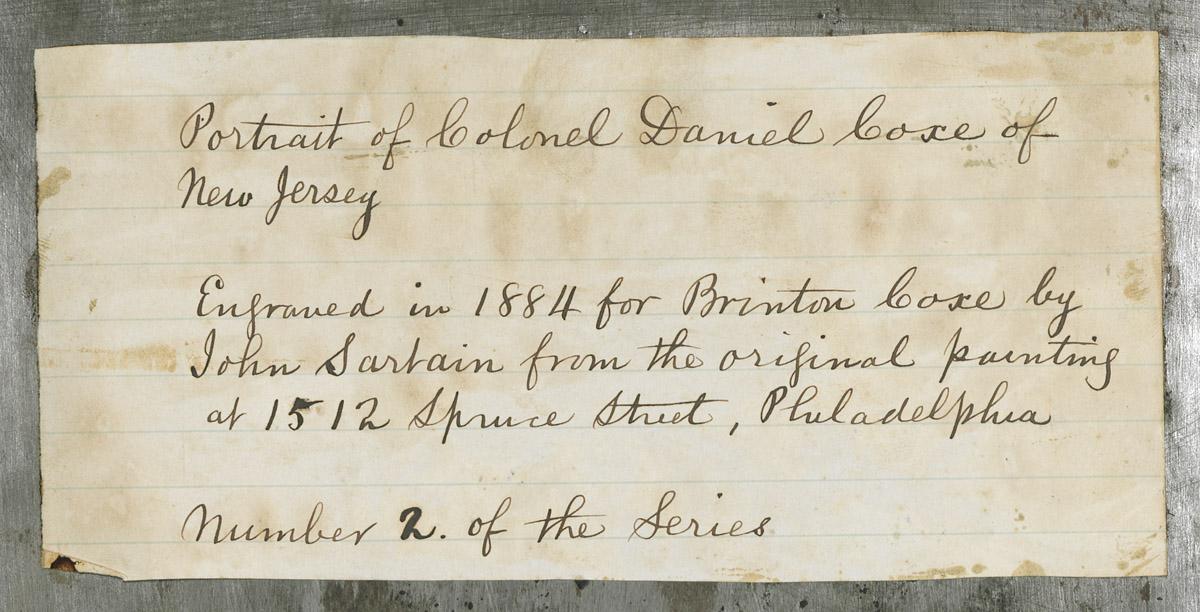 Portrait of Colonel Daniel Coxe of
New Jersey
Engraved in 1884 for Brinton Coxe by
John Sartain from the original painting
at 1512 Spruce Street, Philadelphia
Number 2. of the Series